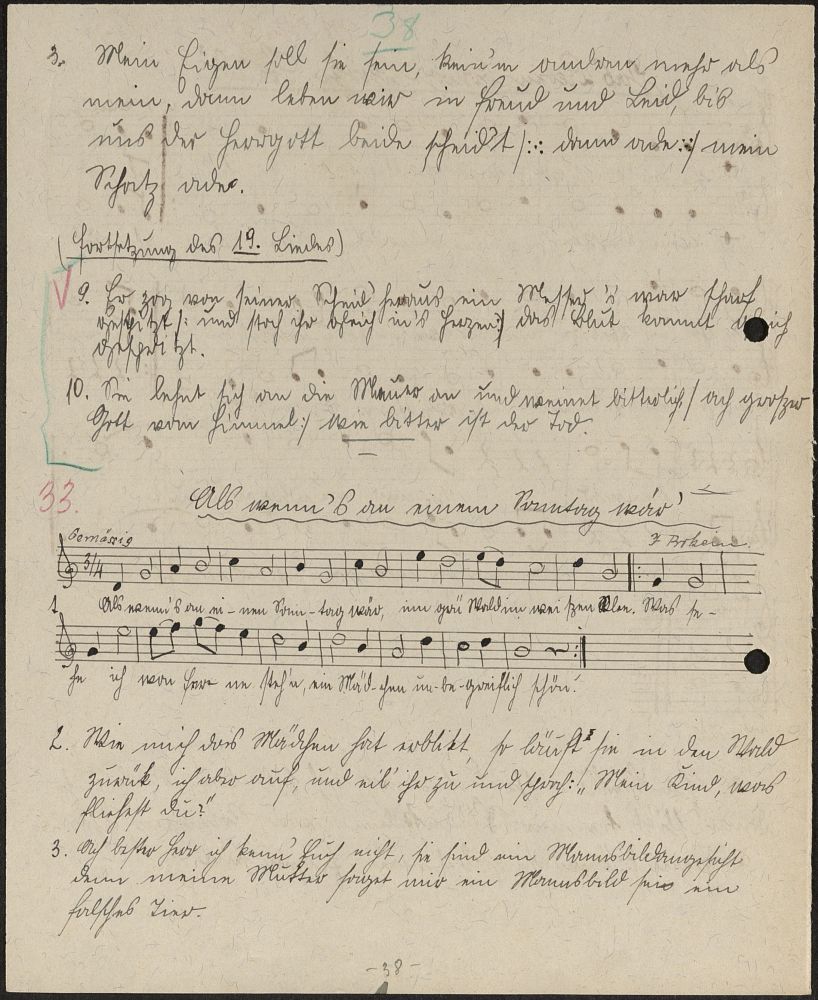 38
3. Mein Eigen soll sie sein, kein'm andren mehr als
mein, dann leben wir in Freud und Leid, bis
uns der Herrgott beide scheid't /:: dann ade ::/ mein
Schatz ade.
(Fortsetzung des 19. Liedes)
9. Er zog von seiner Scheid' heraus ein Messer 's war scharf
gespitzt /: und stach ihr gleich in's Herzen :/ das Blut kommt gleich
gespritzt.
10. Sie lehnt sich an die Mauer an und weinet bitterlich /: ach großer
Gott vom Himmel :/ wie bitter ist der Tod.
33. Als wenn's an einem Sonntag wär'
Gemässig
3/4
1 Als wenn's an ei-nen Sonn-tag wär, im grü Wald im wei ßen Klee. Was se-
he ich von fer-ne steh'n, ein Mäd-chen un-be-greiflich schön.
2. Wie mich das Mädchen hat erblikt, so läuft sie in den Wald
zurük, ich aber auf, und eil' ihr zu und sprach: "Mein Kind, was
fliehest du?"
3. Ach bester Herr ich kenn' Euch nicht, sie sind ein Mannsbildangesicht
denn meine Mutter saget mir ein Mannsbild sei ein
falsches Tier.
-38-